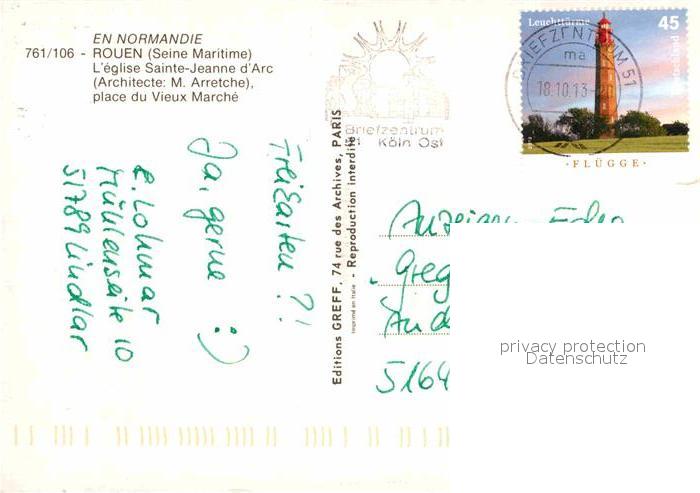 EN NORMANDIE
761/106 - ROUEN (Seine Maritime)
L'église Sainte-Jeanne d'Arc
(Architecte: M. Arretche),
place du Vieux Marché
Freikarten ?!
Ja, gerne :)
R. Lohmar
Mühlenseite 10
51789 Lindlar
Editions GREFF, 74 rue des Archives, PARIS
Imprimé en Italie - Reproduction interdite
Briefzentrum 51
Köln Ost
BRIEFZENTRUM 51
ma
18.10.13
Leuchttürme 45
Deutschland
FLÜGGE
Greg
5164
privacy protection
Datenschutz